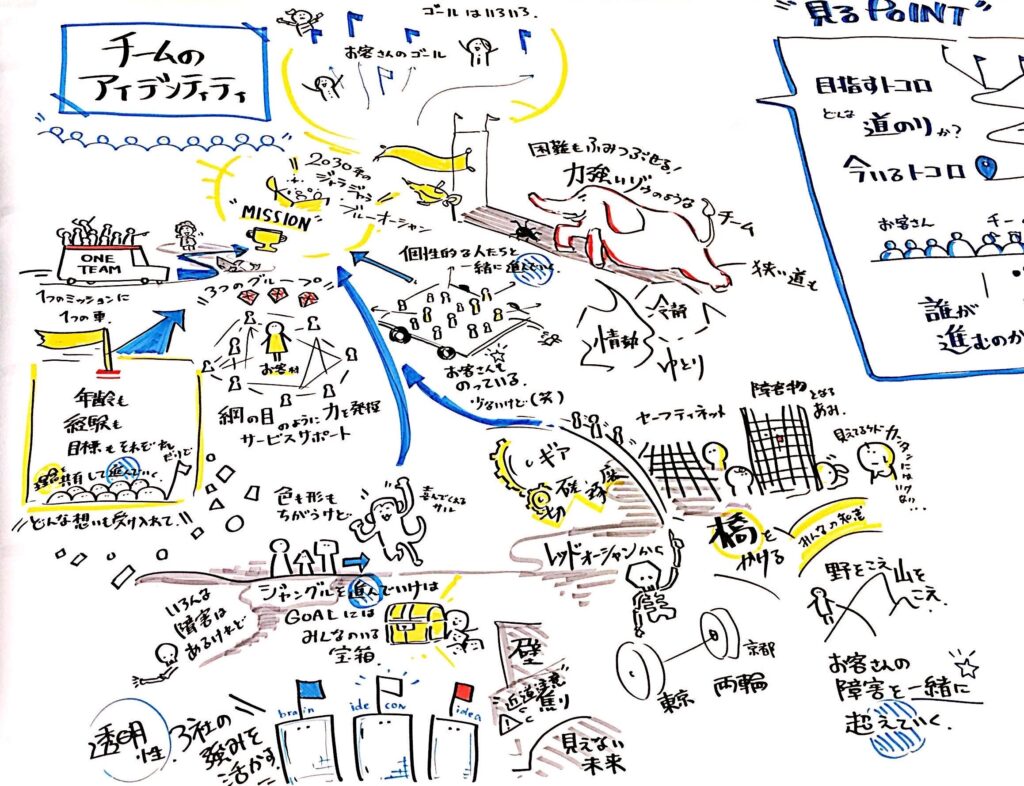 チームの
アイデンティティ
ゴールはいろいろ.
お客さんのゴール
"見るPOINT"
目指すトコロ
どんな
道のりか?
今いるトコロ
お客さん
チー
誰が
進むのか
2030年の
ジャラジャラ
ブルーオーシャン
"MISSION"
困難もふみつぶせる!
力強いゾウのような
チーム
狭い道も
ONE
TEAM
1つのミッションに
1つの車.
3つのグループ
お客様
網の目のように力を発揮
サービスサポート
個性的な人たちと
一緒に進んでいく.
お客さんも
のっている.
少ないけど(笑)
冷静
情熱
ゆとり
年齢も
経験も
目標もそれぞれ
だけど
理念を共有して進んでいく
どんな想いも受け入れて.
色も形も
ちがうけど
喜んでくれる
サル
ギア
切磋琢磨
セーフティネット
障害物となる
あみ.
見えてるケド
カンタンには
いけない..
橋を
かける
みんなの知恵
レッドオーシャンから
野をこえ山を
こえ.
いろんな
障害は
あるけれど
ジャングルを進んでいけば
GOALには
みんなのいる
宝箱.
壁
焦り
見えない
未来
東京
両輪
京都
お客さんの
障害を一緒に
超えていく.
透明性
3社の
強みを
活かす.
brain
ide
CON
idea